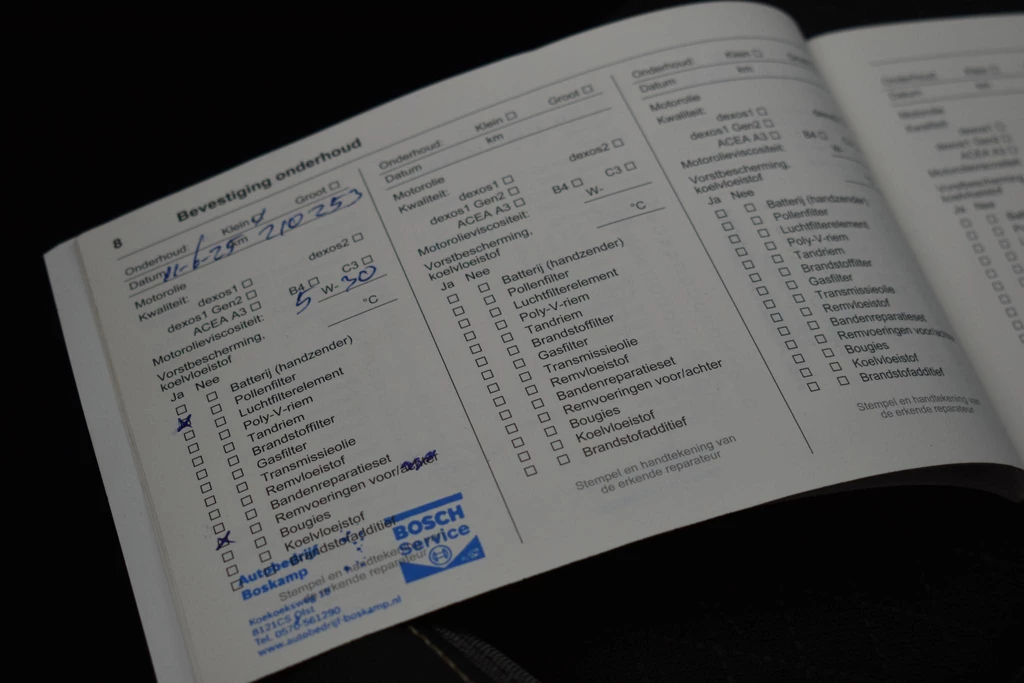 8
Bevestiging onderhoud
Onderhoud: Klein Groot
Datum 11-6-25 km 210253
Motorolie
Kwaliteit: dexos1 dexos2
dexos1 Gen2
ACEA A3 B4 C3
Motorolieviscositeit: 5 W- 30
Vorstbescherming,
koelvloeistof °C
Ja Nee
Batterij (handzender)
Pollenfilter
Luchtfilterelement
Poly-V-riem
Tandriem
Brandstoffilter
Gasfilter
Transmissieolie
Remvloeistof
Bandenreparatieset
Remvoeringen voor/achter
Bougies
Koelvloeistof
Brandstofadditief
Stempel en handtekening
de erkende reparateur
Autobedrijf
Boskamp
Koekoeksweg
8121CS Olst
Tel. 0570 561290
www.autobedrijf-boskamp.nl
BOSCH
Service
Onderhoud: Klein Groot
Datum km
Motorolie
Kwaliteit: dexos1 dexos2
dexos1 Gen2
ACEA A3 B4 C3
Motorolieviscositeit: W-
Vorstbescherming,
koelvloeistof °C
Ja Nee
Batterij (handzender)
Pollenfilter
Luchtfilterelement
Poly-V-riem
Tandriem
Brandstoffilter
Gasfilter
Transmissieolie
Remvloeistof
Bandenreparatieset
Remvoeringen voor/achter
Bougies
Koelvloeistof
Brandstofadditief
Stempel en handtekening van
de erkende reparateur
Onderhoud: Klein
Datum km
Motorolie
Kwaliteit: dexos1
dexos1 Gen2
ACEA A3 B4
Motorolieviscositeit: W-
Vorstbescherming,
koelvloeistof
Ja Nee
Batterij (handzender)
Pollenfilter
Luchtfilterelement
Poly-V-riem
Tandriem
Brandstoffilter
Gasfilter
Transmissieolie
Remvloeistof
Bandenreparatieset
Remvoeringen
Bougies
Koelvloeistof
Brandstofadditief
Stempel en handtekening van
de erkende reparateur
Onderhoud: Klein
Datum km
Motorolie
Kwaliteit: dexos1
dexos1 Gen2
ACEA A3
Ja Nee